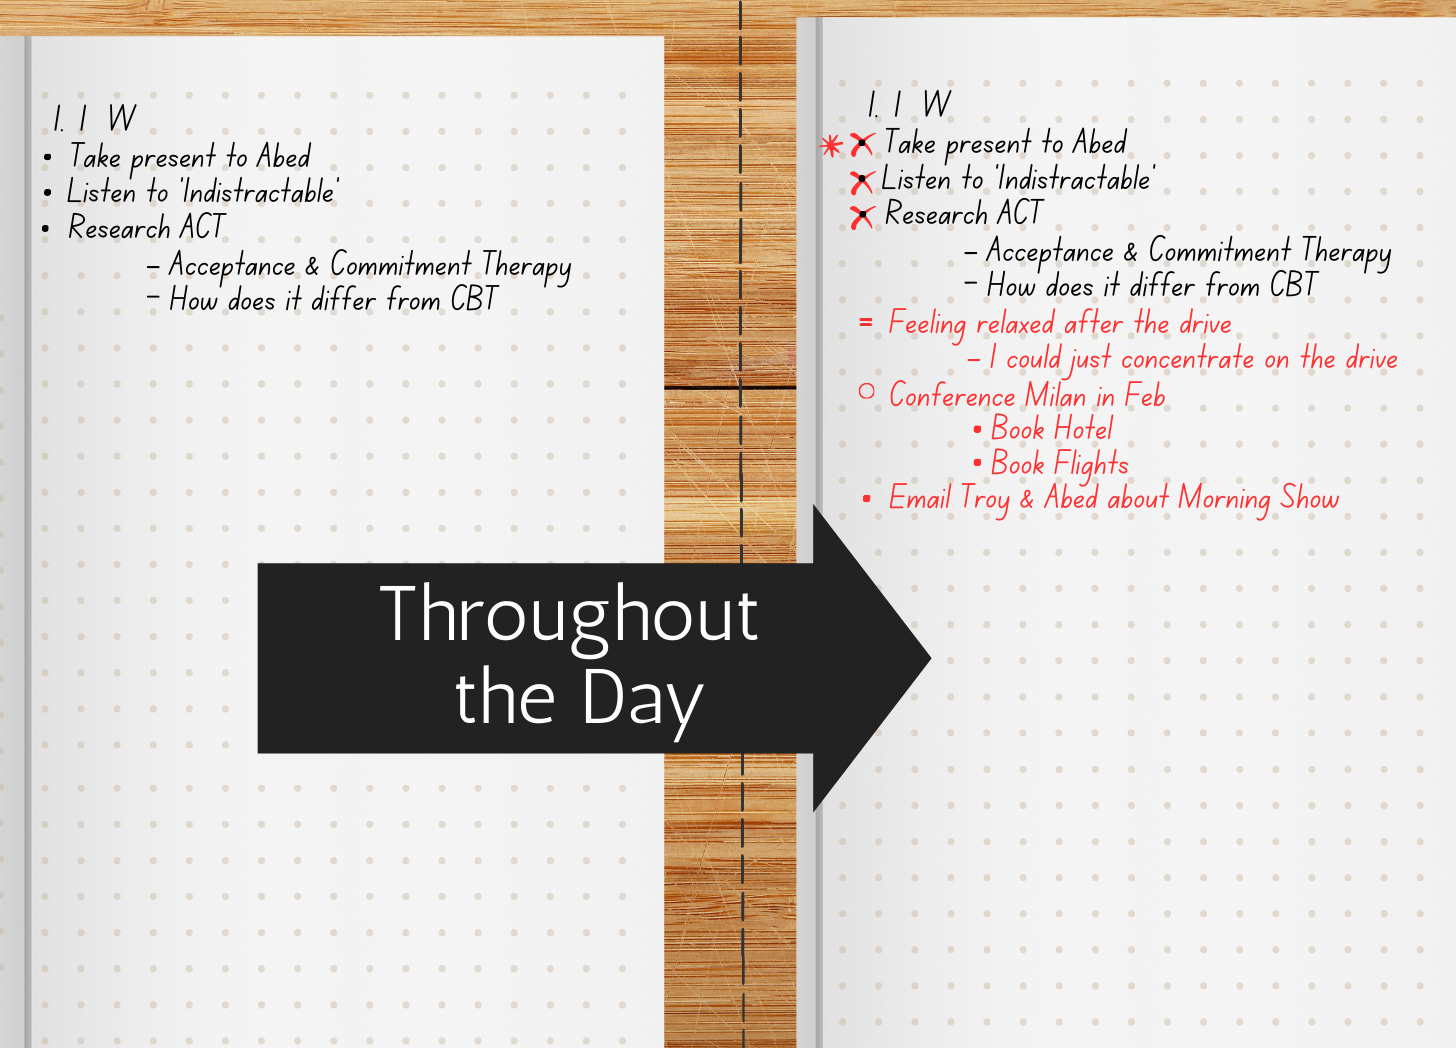 1. 1 W
• Take present to Abed
• Listen to 'Indistractable'
• Research ACT
– Acceptance & Commitment Therapy
– How does it differ from CBT
1. 1 W
* X Take present to Abed
X Listen to 'Indistractable'
X Research ACT
– Acceptance & Commitment Therapy
– How does it differ from CBT
= Feeling relaxed after the drive
– I could just concentrate on the drive
○ Conference Milan in Feb
• Book Hotel
• Book Flights
• Email Troy & Abed about Morning Show
Throughout
the Day